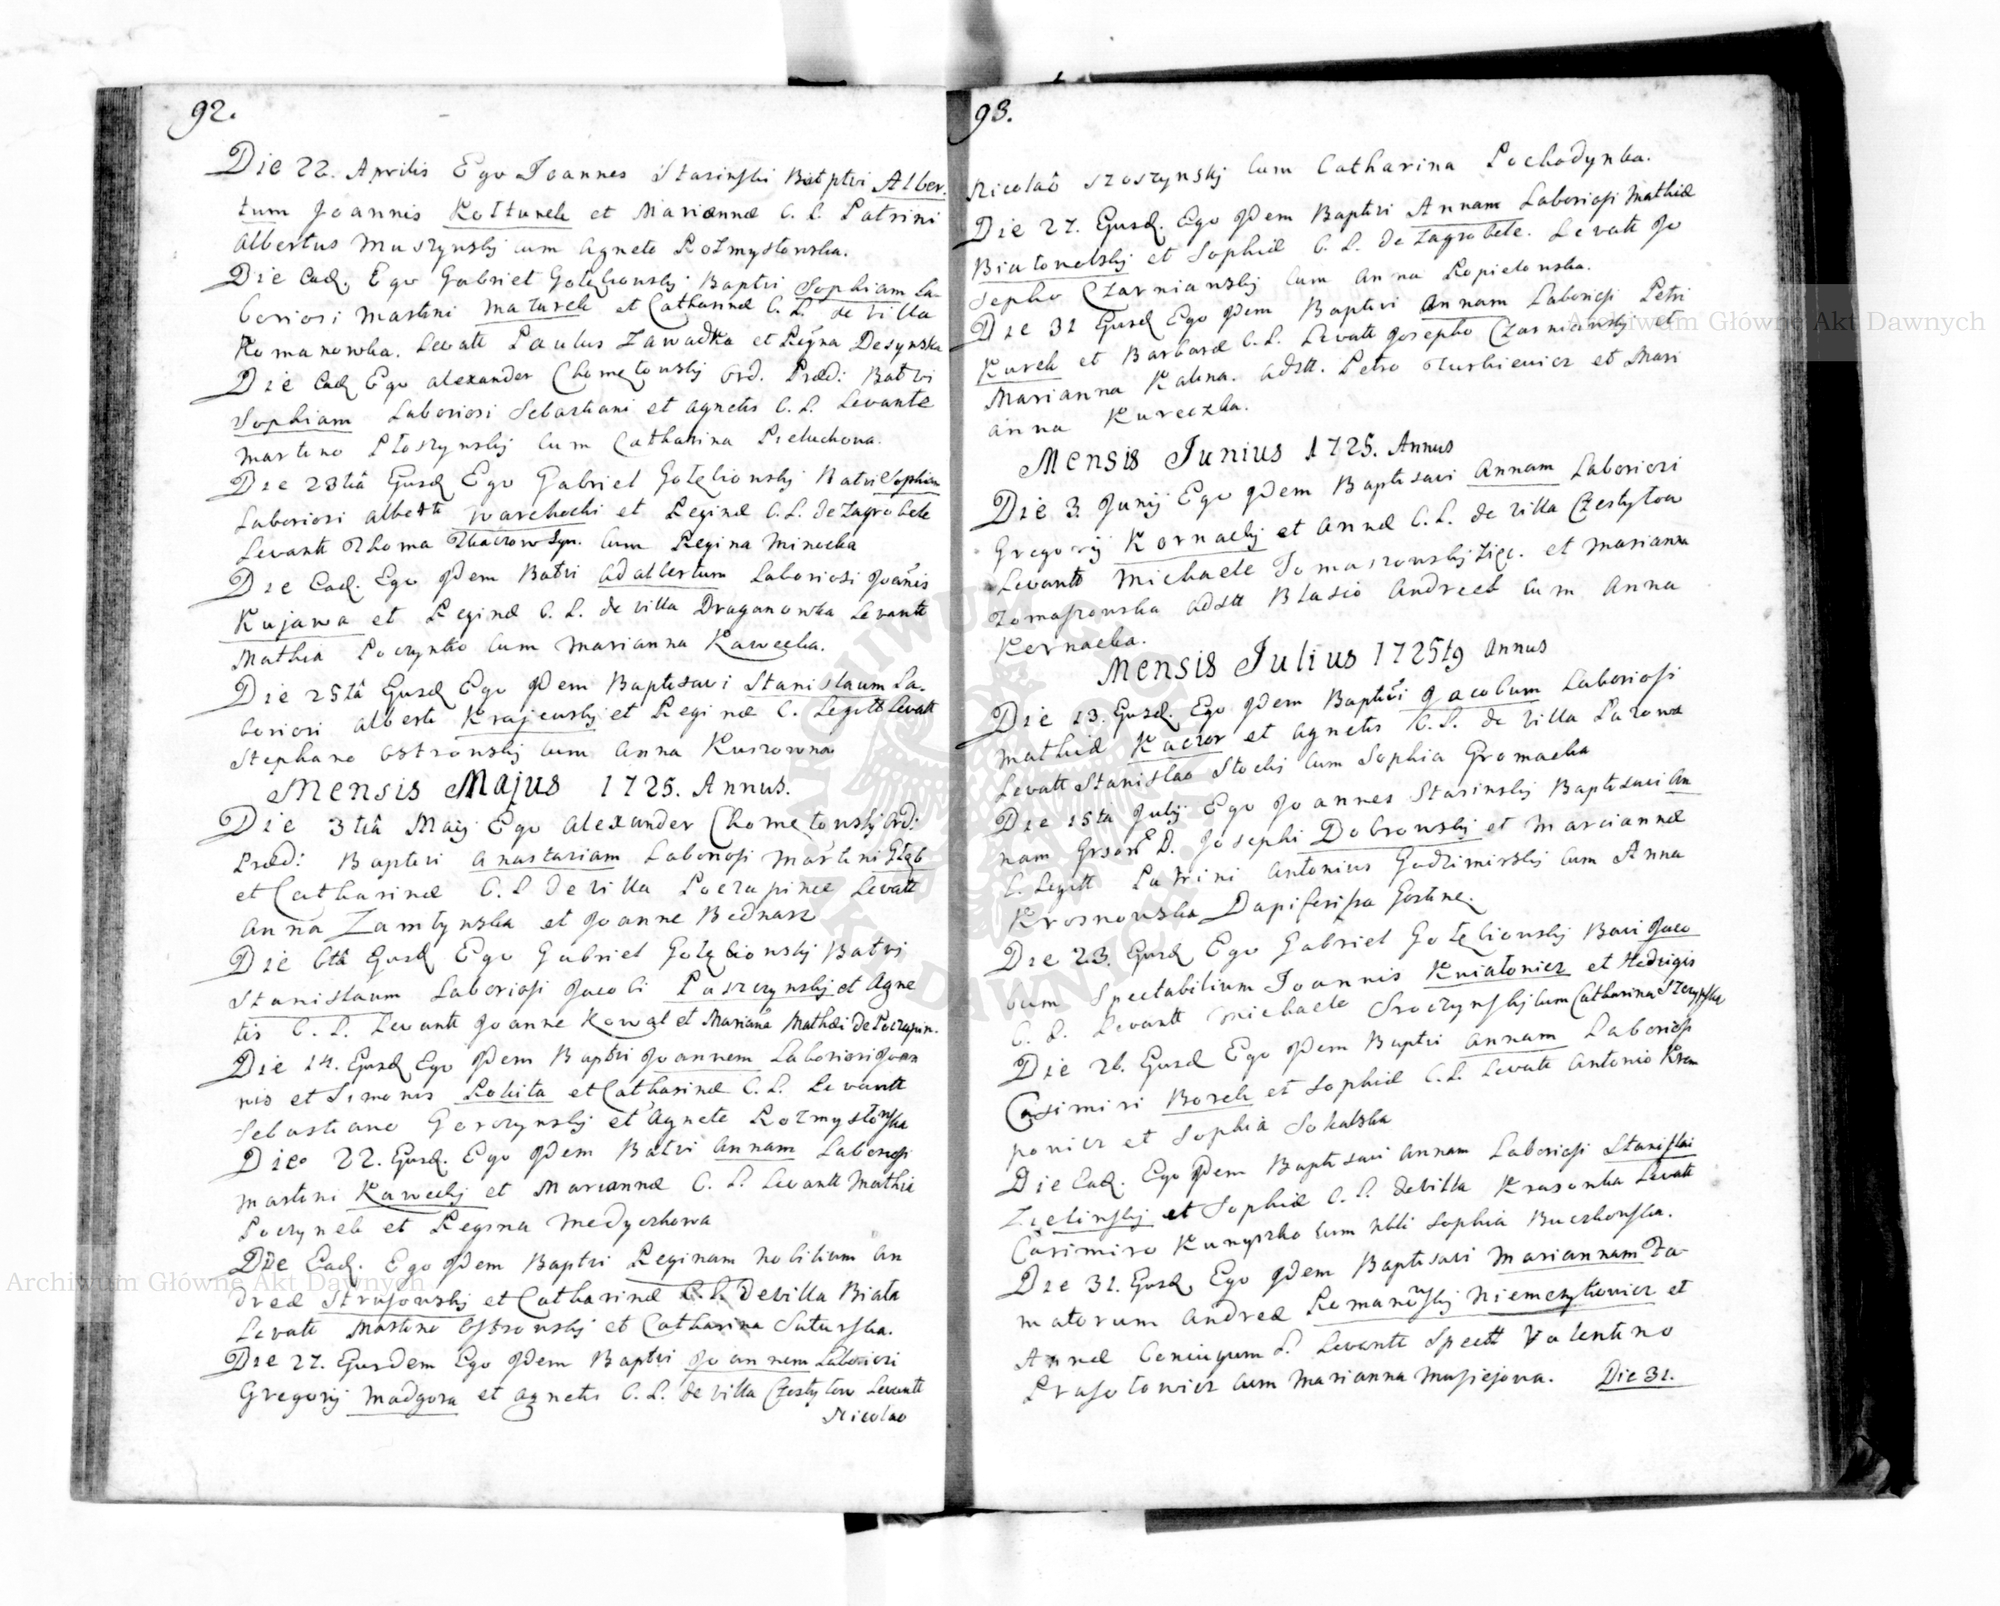 92.
Die 22. Aprilis Ego Joannes Stasinski Batptvi Alber-
tum Joannis Kołtunek et Mariannæ C. L. Patrini
Albertus Muszynskj cum Agnete Rozmysłowska.
Die Ead. Ego Gabriel Gołęmbiowskj Baptvi Sophiam La-
boriosi Martini Maturek et Catharinæ C. L. de Villa
Romanowka. Levatt Paulus Zawadka et Regina Desynska
Die Ead Ego Alexander Chomętowskj Ord. Præd: Batvi
Sophiam Laboriosi Sebastiani et Agnetis C. L. Levante
Martino Płoszynskj cum Catharina Pieluchowa.
Die 23tiâ Eiusd Ego Gabriel Gołębiowskj Batvi Sophiam
Laboriosi Alberti Warchocki et Reginæ C. L. de Zagrobele
Levantt Thoma cum Regina Minecka
Die Ead. Ego Qdem Batvi Adalbertum Laboriosi Joanis
Kujawa et Reginæ C. L. de Villa Draganowka Levantt
Mathia Poczynko cum Marianna Kawecka.
Die 25tâ Eiusd Ego Qdem Baptisavi Stanislaum La-
boriosi Alberti Krajewskj et Reginæ C. Legitt Levatt
Stephano Ostrowskj cum Anna Kuszowna
Mensis Majus 1725. Annus.
Die 3tiâ Maij Ego Alexander Chomętowskj Ord:
Præd: Baptvi Anastasiam Laboriosi Martini Głąb
et Catharinæ C. L. de Villa Poczapince Levatt
Anna Zamłynska et Joanne Bednarz
Die 6tâ Eiusd Ego Gabriel Gołębiowskj Batvi
Stanislaum Laboriosi Jacobi Paszczynskj et Agne
tis C. L. Levantt Joanne Kowal et Mariana Mathæi de Poczapin.
Die 14. Eiusd Ego Qdem Baptvi Joannem Laboriosi Joan
nis et Simonis Pokita et Catharinæ C. L. Levantt
Sebastiano Gorczynskj et Agnete Rozmysłowska
Die 22. Eiusd. Ego Qdem Batvi Annam Laboriosi
Martini Kaweckj et Mariannæ C. L. Levantt Mathia
Poczynek et Regina Medyczkowa
Die Ead. Ego Qdem Baptvi Reginam Nobilium An
dreæ Strusowskj et Catharinæ C. L. de Villa Biała
Levatt Martino Ostrowskj et Catharina Saturska.
Die 27. Eiusdem Ego Qdem Baptvi Joannem Laboriosi
Gregorij Madgora et Agnetis C. L. de Villa Czestyłow Levantt
Nicolao
93.
Nicolaô Szoszynskj cum Catharina Pochodynka.
Die 27. Eiusd. Ego Qdem Baptvi Annam Laboriosi Mathiæ
Białoneckj et Sophiæ C. L. de Zagrobele. Levatt Jo
sepho Czarnianskj cum Anna Kopielowska.
Die 31 Eiusd Ego Qdem Baptvi Annam Laboriosi Petri
Kurek et Barbaræ C. L. Levatt Josepho Czarnianskj et
Marianna Kalina. Adstt. Petro Turkiewicz et Mari
anna Kureczka.
Mensis Junius 1725. Annus
Die 3. Junij Ego Qdem Baptisavi Annam Laboriosi
Gregorij Kornackj et Annæ C. L. de Villa Czestyłow
Levantt Michaele Tomaszowskj Zięc. et Marianna
Tomaszowska Adstt Blasio Andreek cum Anna
Kernacka.
Mensis Julius 1725ty Annus
Die 13. Eiusd. Ego Qdem Baptvi Jacobum Laboriosi
Mathiæ Kaczor et Agnetis C. L. de Villa Łozowa
Levatt Stanislao Stockj cum Sophia Gromacka
Die 15ta Julij Ego Joannes Stasinskj Baptisavi An
nam D. Josephi Dobrowskj et Mariannæ
C. Legitt Patrini Antonius Godzimirskj cum Anna
Krosnowska Dapiferissa
Die 23. Eiusd Ego Gabriel Gołębiowskj Bavi Jaco
bum Spectabilium Joannis Kwiatowicz et Hedvigis
C. L. Levantt Michaele Sroczynskj cum Catharina
Die 26. Eiusd Ego Qdem Baptvi Annam Laboriosi
Casimiri Borek et Sophiæ C. L. Levatt Antonio Krem
powicz et Sophia Sokalska
Die Ead. Ego Qdem Baptisavi Annam Laboriosi Stanislai
Zielinskj et Sophiæ C. L. de Villa Krasowka Levatt
Casimiro Kunyszko cum Nbli Sophia Buczkowska.
Die 31. Eiusd. Ego Qdem Baptisavi Mariannam Fa-
matorum Andreæ Romanowskj Niemczykowicz et
Annæ Coniugum L. Levantt Spectt Valentino
Prasołowicz cum Marianna Musiejowa. Die 31.
Archiwum Główne Akt Dawnych
Archiwum Główne Akt Dawnych